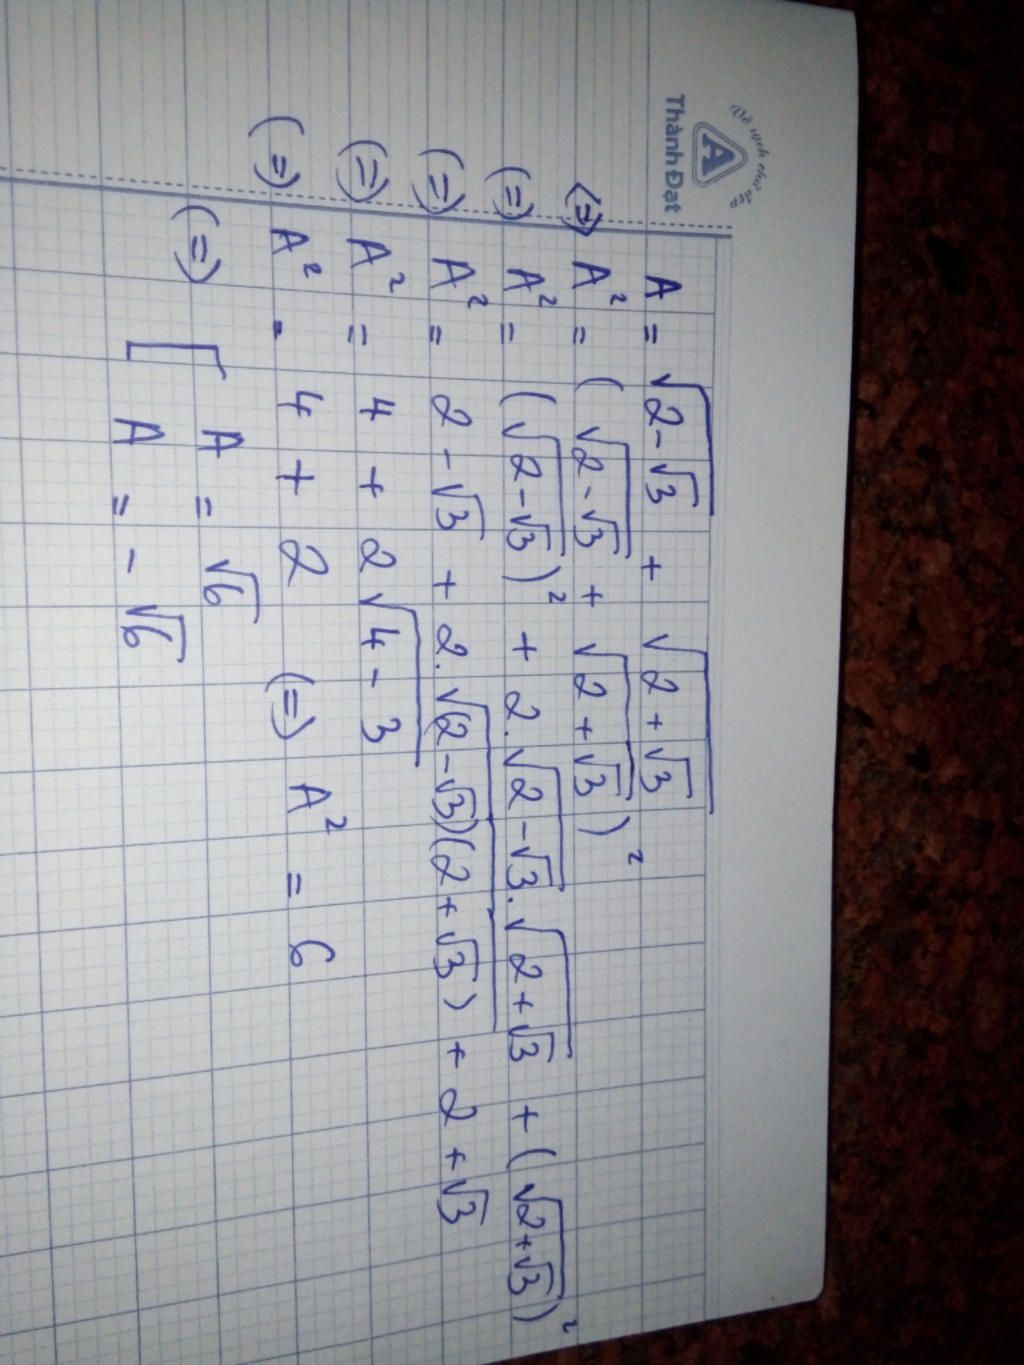 Vở sạch chữ đẹp
A
Thành Đạt
A = √(2-√3) + √(2+√3)
(=) A² = (√(2-√3) + √(2+√3))²
(=) A² = (√(2-√3))² + 2.√(2-√3).√(2+√3) + (√(2+√3))²
(=) A² = 2-√3 + 2.√((2-√3)(2+√3)) + 2+√3
(=) A² = 4 + 2√(4-3)
(=) A² = 4 + 2 (=) A² = 6
(=) [ A = √6
A = -√6